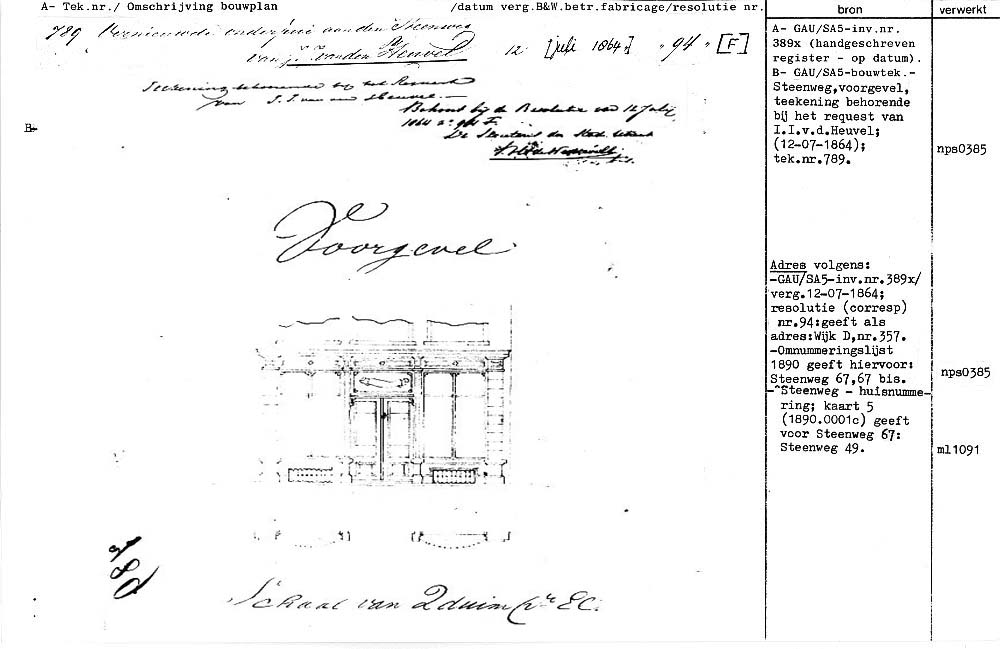 A- Tek.nr./ Omschrijving bouwplan /datum verg.B&W.betr.fabricage/resolutie nr.
bron
verwerkt
789 Vernieuwde onderpui aan den Steenweg
van J. J. van den Heuvel 12 [juli 1864] "94" [F]
Teekening behoorende bij het Request
van J. J. van den Heuvel.
Behoort bij de Resolutie van 12 July
1864 no 94 F.
De Secretaris der Stad Utrecht
B-
Voorgevel
789
Schaal van 2 duim pr. El.
A- GAU/SA5-inv.nr.
389x (handgeschreven
register - op datum).
B- GAU/SA5-bouwtek.-
Steenweg,voorgevel,
teekening behorende
bij het request van
I.I.v.d.Heuvel;
(12-07-1864);
tek.nr.789.
nps0385
Adres volgens:
-GAU/SA5-inv.nr.389x/
verg.12-07-1864;
resolutie (corresp)
nr.94:geeft als
adres:Wijk D,nr.357.
-Omnummeringslijst
1890 geeft hiervoor:
Steenweg 67,67 bis.
nps0385
-^Steenweg - huisnumme-
ring; kaart 5
(1890.0001c) geeft
voor Steenweg 67:
Steenweg 49.
ml1091